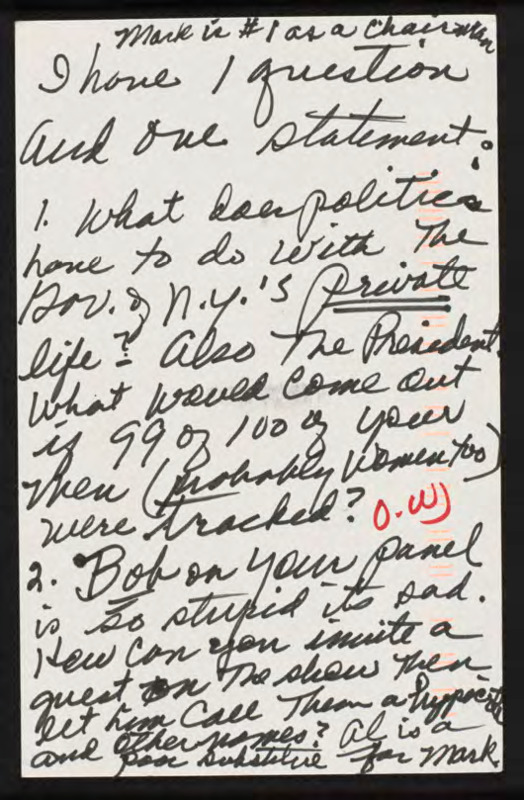 Mark is #1 as a Chairman
I have 1 question
and one statement.
1. What does politics
have to do with the
Gov. of N.Y.'s private
life? Also the President.
What would come out
if 99 of 100 of your
men (probably women too)
were tracked? O.W)
2. Bob on your panel
is so stupid its sad.
How can you invite a
guest on the show then
let him call them a hypocrite
and other names? Al is a
poor substitue for Mark.